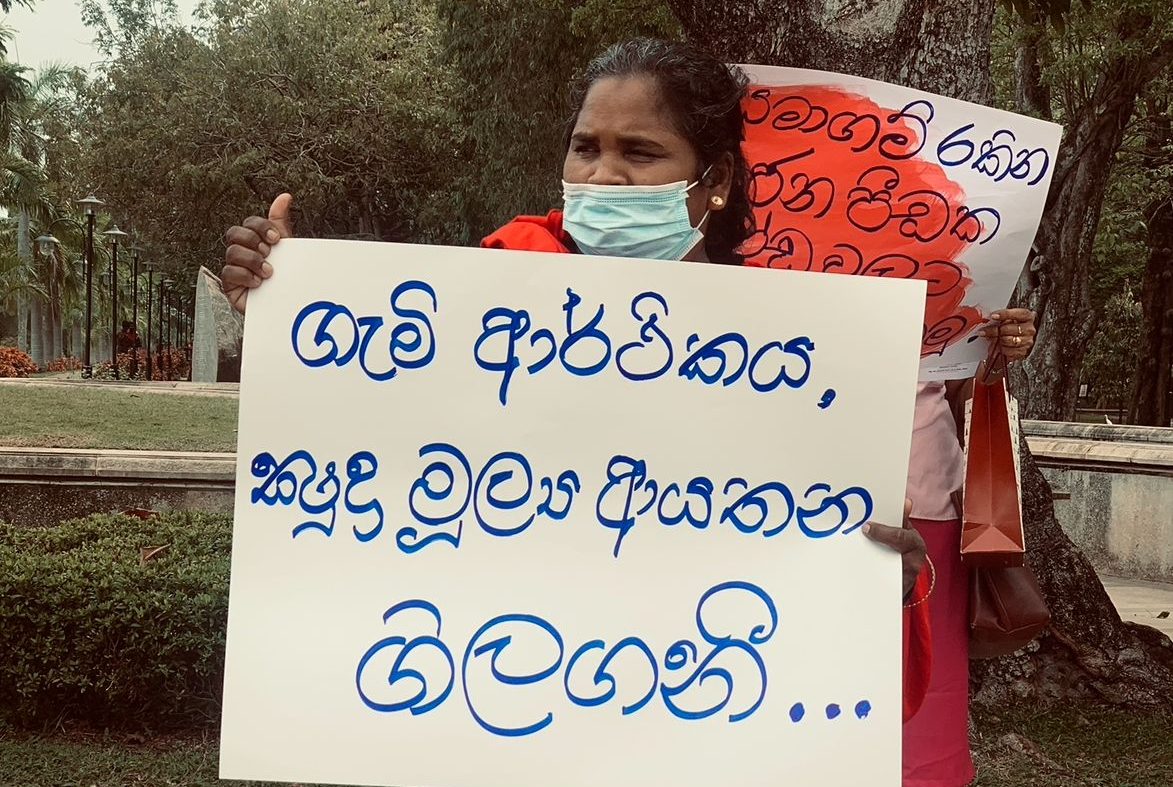 ගැමි ආර්ථිකය,
ක්ෂුද්‍ර මූල්‍ය ආයතන
ගිලගනී...
සමාගම් රකින
ජන පීඩක